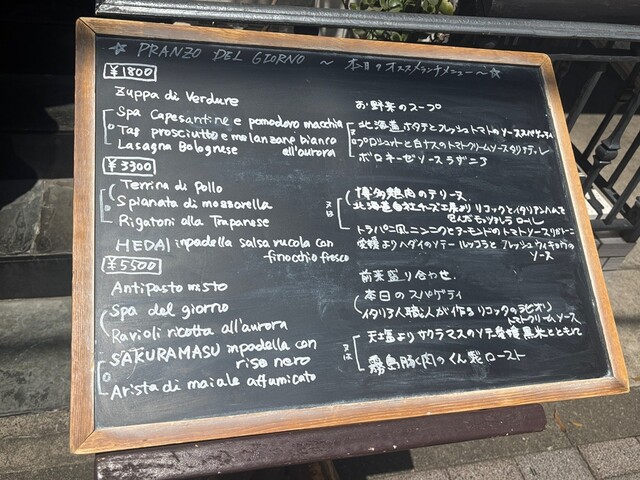 ☆ PRANZO DEL GIORNO ～ 本日のオススメランチメニュー～☆
¥1800
Zuppa di Verdure お野菜のスープ
Spa Capesantine e pomodoro macchia 北海道ホタテとフレッシュトマトのソーススパゲッティ
Tag prosciutto e melanzane bianco all'aurora プロシュットと白ナスのトマトクリームソースタリアテッレ
Lasagna Bolognese ボロネーゼソース ラザニア
¥3300
Terrina di Pollo 博多鶏肉のテリーヌ
Spianata di mozzarella 北海道白糠チーズ工房より リコッタとイタリアンハムで
包んだモッツァレラ ロール
Rigatoni alla Trapanese トラパニ風ニンニクとアーモンドのトマトソースリガトーニ
HEDAI inpadella salsa rucola con finocchio fresco 愛媛よりヘダイのソテー ルッコラと フレッシュフィノッキオの
ソース
¥5500
Antipasto misto 前菜盛り合わせ.
Spa del giorno 本日のスパゲティ
Ravioli ricotta all'aurora イタリア人職人が作る リコッタのラビオリ
トマトクリームソース
SAKURAMASU inpadella con riso nero サクラマスのソテー 黒米とともに
Arista di maiale affumicato 霧島豚肉のくん製ロースト